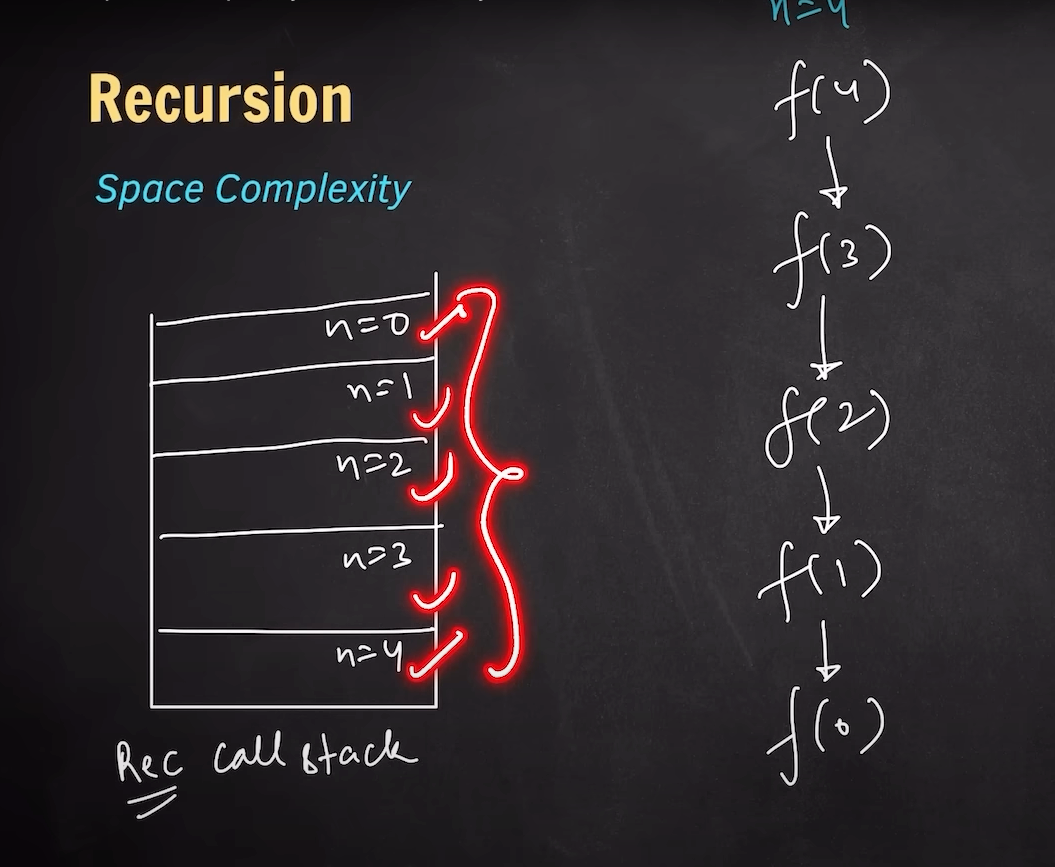 n=4
Recursion
Space Complexity
n=0
n=1
n=2
n=3
n=4
Rec call stack
f(4)
f(3)
f(2)
f(1)
f(0)